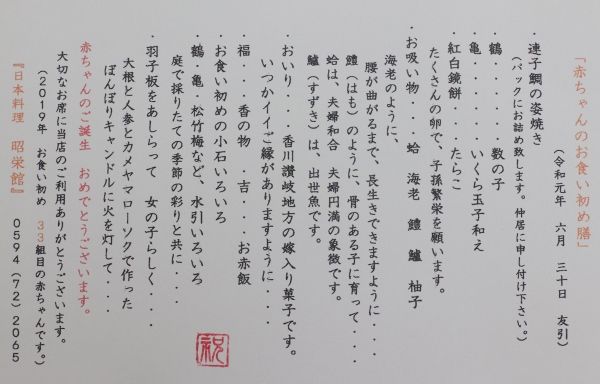 「赤ちゃんのお食い初め膳」
(令和元年 六月 三十日 友引)
・連子鯛の姿焼き
(パックにお詰め致します。仲居に申し付け下さい。)
・鶴・・・・・・数の子
・亀・・・・・・いくら玉子和え
・紅白鏡餅・・・・たらこ
たくさんの卵で、子孫繁栄を願います。
・お吸い物・・・蛤 海老 鱧 鱸 柚子
海老のように、
腰が曲がるまで、長生きできますように・・・・
鱧(はも)のように、骨のある子に育って・・・・
蛤は、夫婦和合 夫婦円満の象徴です。
鱸(すずき)は、出世魚です。
・おいり・・ 香川讃岐地方の嫁入り菓子です。
いつかイイご縁がありますように・・・・
・福・・・香の物 ・吉・・・お赤飯
・お食い初めの小石いろいろ
・鶴・亀・松竹梅など、水引いろいろ
庭で採りたての季節の彩りと共に・・・・
・羽子板をあしらって 女の子らしく・・・
大根と人参とカメヤマローソクで作った
ぼんぼりキャンドルに火を灯して・・・・
赤ちゃんのご誕生 おめでとうございます。
大切なお席に当店のご利用ありがとうございます。
(2019年 お食い初め 33組目の赤ちゃんです。)
『日本料理 昭栄館』 0594(72)2065
祝